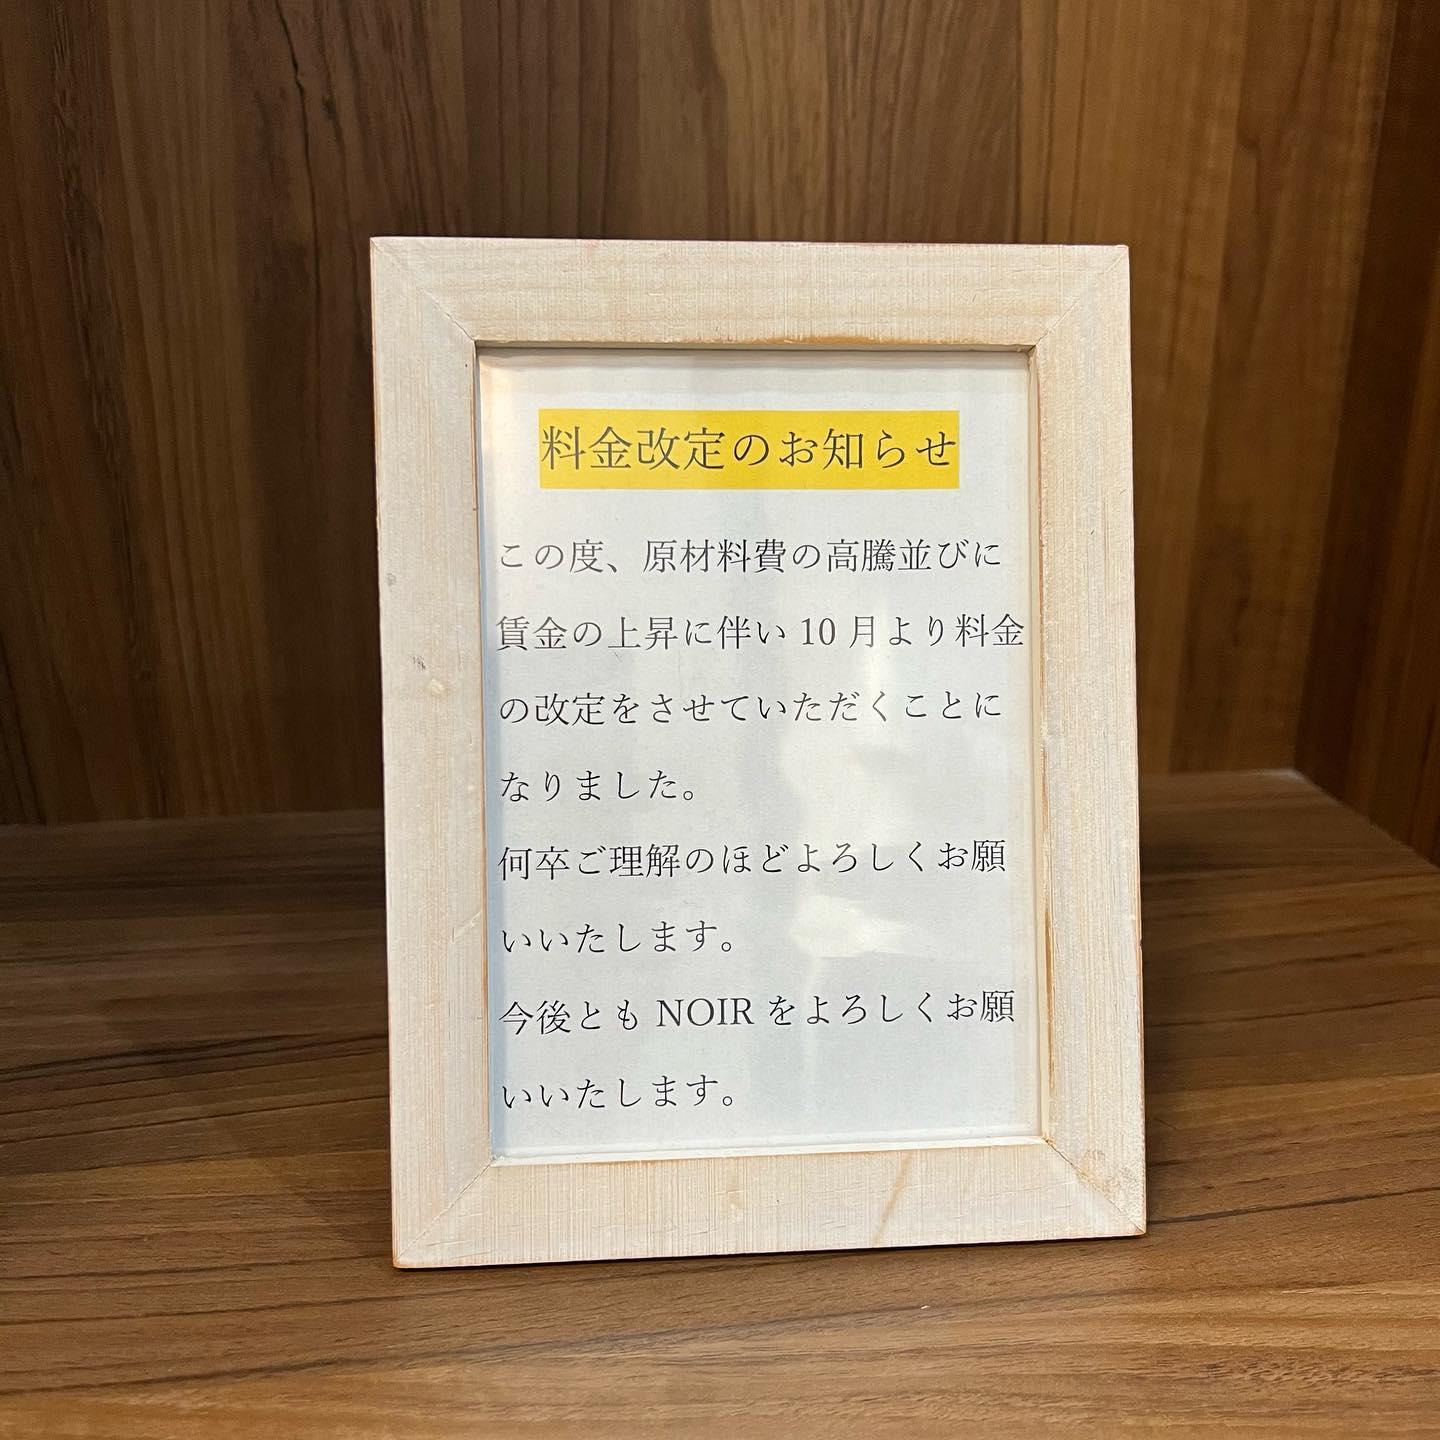 料金改定のお知らせ
この度、原材料費の高騰並びに
賃金の上昇に伴い 10 月より料金
の改定をさせていただくことに
なりました。
何卒ご理解のほどよろしくお願
いいたします。
今後とも NOIR をよろしくお願
いいたします。